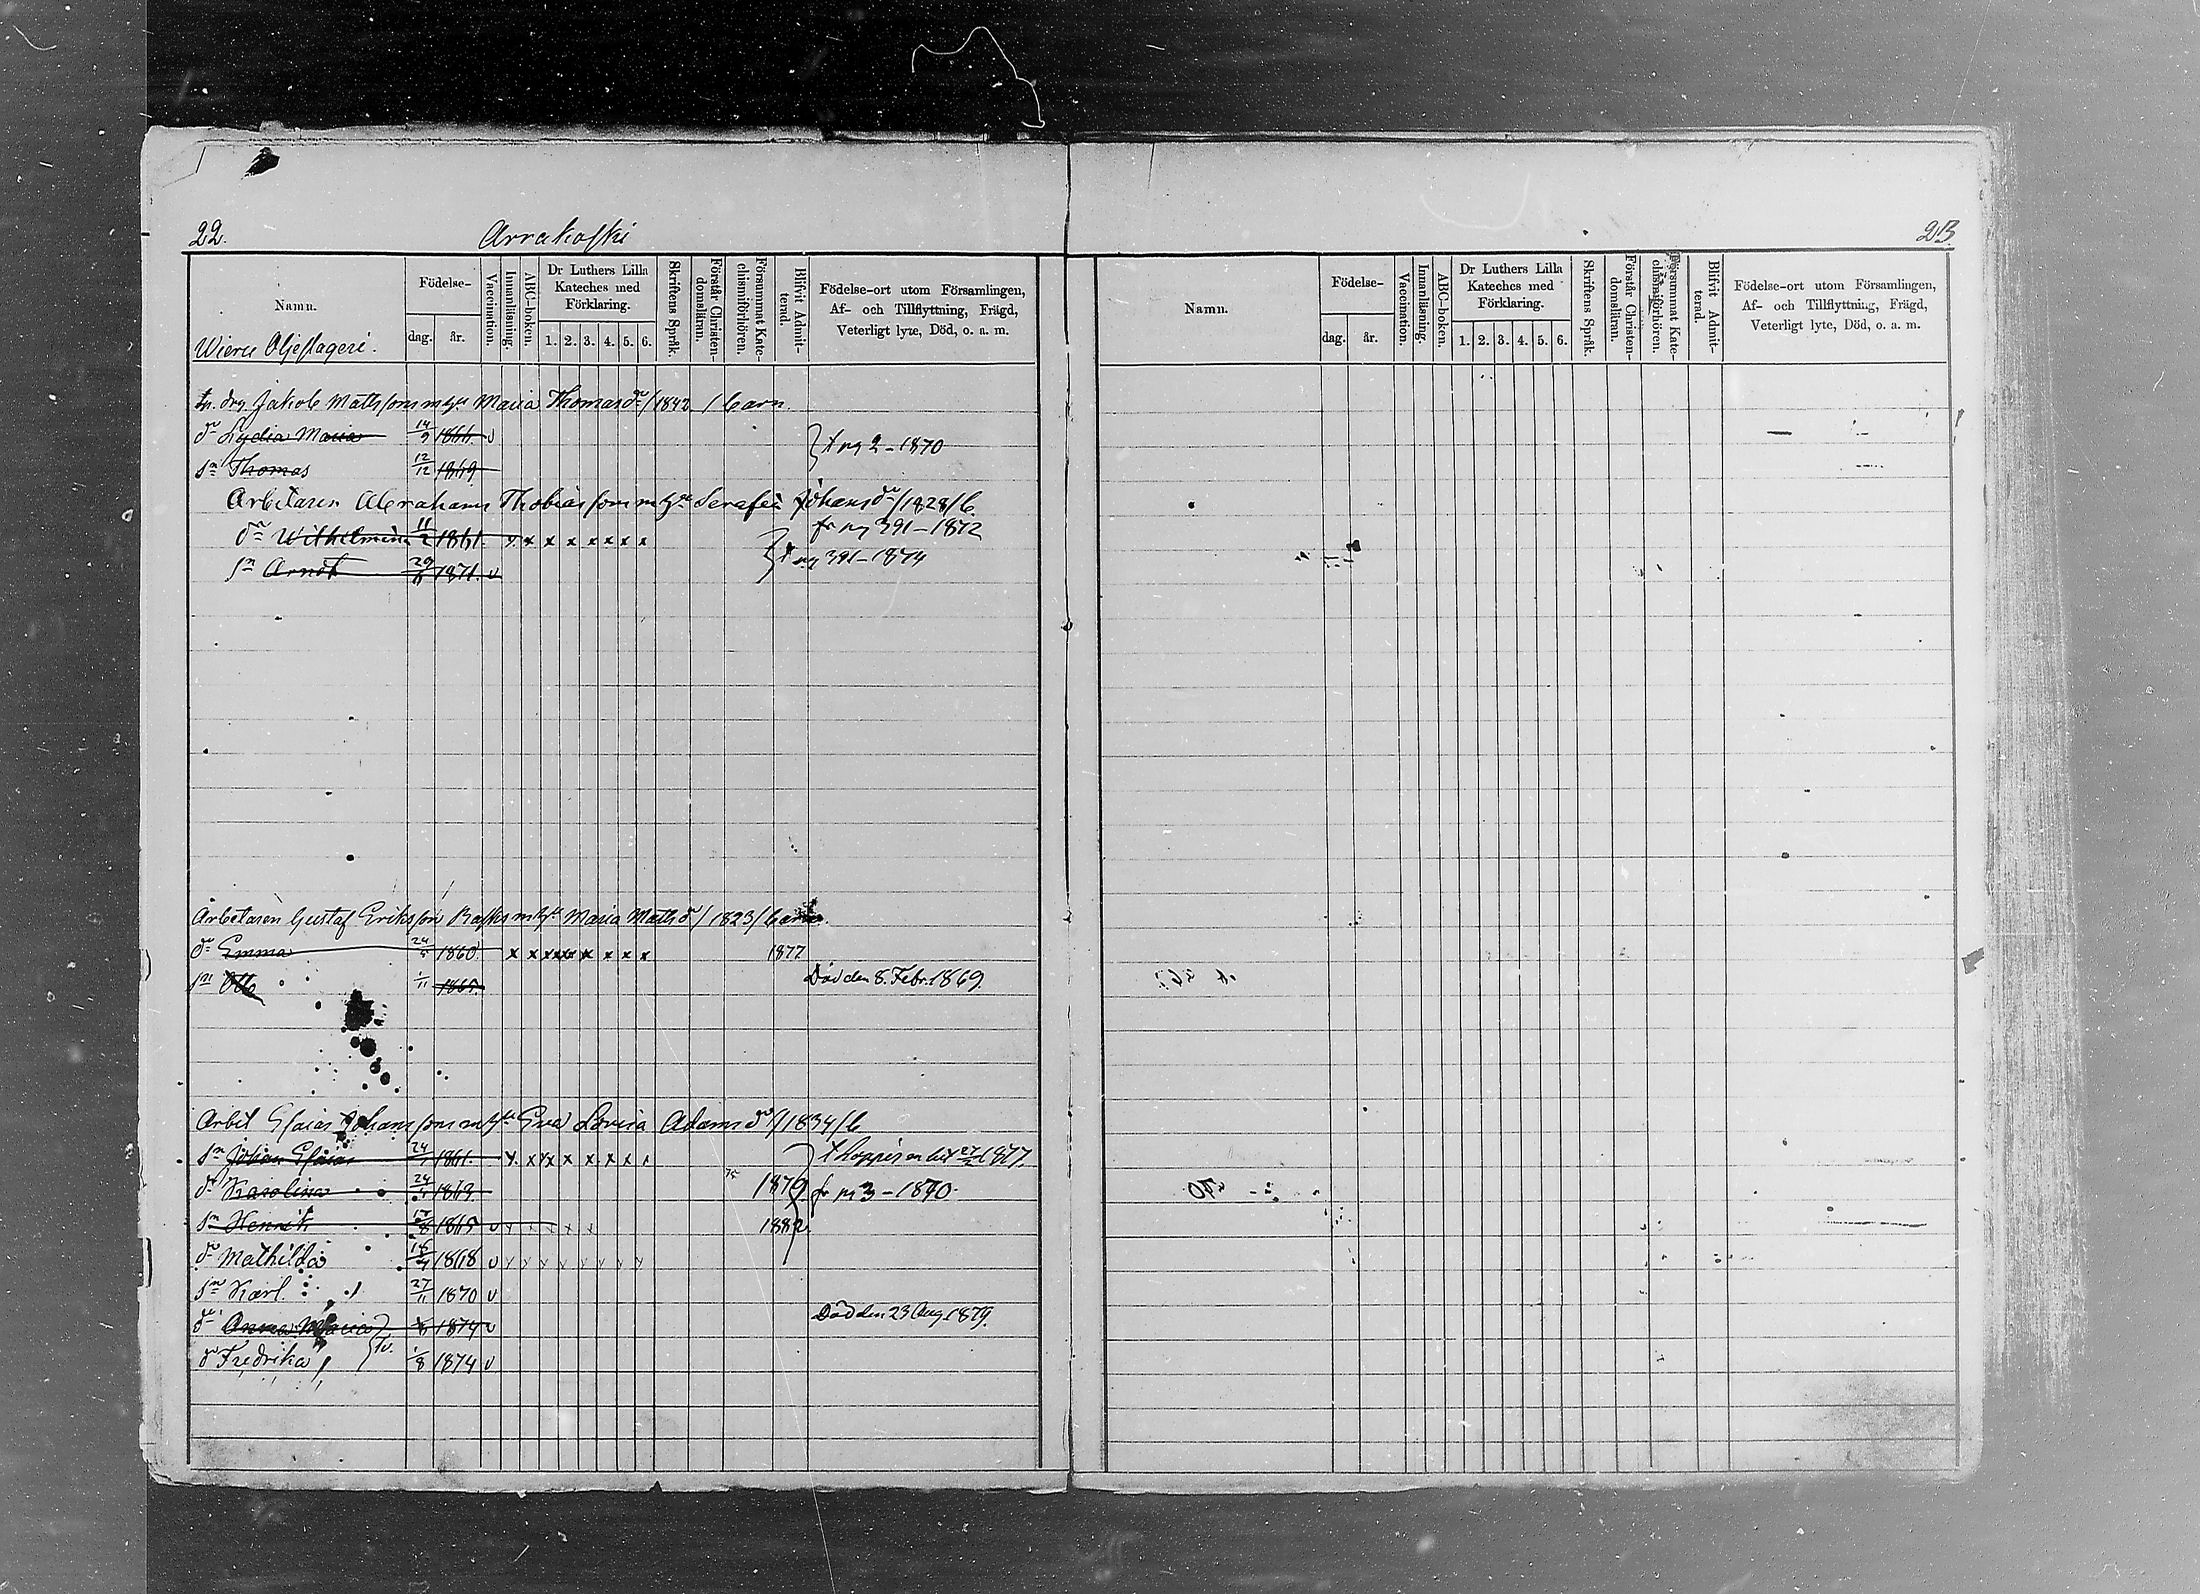 22.
Arrakoski
Namn.
Födelse-
dag.
år.
Vaccination.
Innanläsning.
ABC-boken.
Dr Luthers Lilla
Kateches med
Förklaring.
1. 2. 3. 4. 5. 6.
Skriftens Språk.
Förstår Christen-
domsläran.
Försummat Kate-
chismiförhören.
Blifvit Admit-
terad.
Födelse-ort utom Församlingen,
Af- och Tillflyttning, Frägd,
Veterligt lyte, Död, o. a. m.
Wieru Oljeslageri.
Jakob Mathsson m hu Maria Thomas dr /1842 / barn
dr Lydia Maria 14/9 1866 v
sn Thomas 12/12 1869
t pg 2 - 1870
Arbetaren Abraham Thobiasson m hu Serafia Johans dr /1828/ b.
fr pg 391 - 1872
dr Wilhelmina 11/2 1861 x x x x x x x x
sn Arndt 29/11 1871 v
t pg 391 - 1874
Arbetaren Gustaf Eriksson m hu Maria Maths dr / 1823 / barn
dr Emma 24/5 1860 x x x x x x x x x 1877
sn Otto 1/11 1865 Död den 8. Febr. 1869.
Arbet Esaias Johansson m hu Eva Lovisa Adams dr /1834/ b
sn Johan Esaias 24/7 1861 x x x x x x x x
dr Karolina 1863 1879 fr pg 3 - 1870
sn Henrik 17/8 1865 v x x x x x 1882
dr Mathilda 1868 v x x x x x x x x
sn Karl 27/11 1870 v
dr Anna Maria 1/8 1874 v Död den 23 Aug 1879.
tv.
dr Fredrika 1/8 1874 v
23
Namn.
Födelse-
dag.
år.
Vaccination.
Innanläsning.
ABC-boken.
Dr Luthers Lilla
Kateches med
Förklaring.
1. 2. 3. 4. 5. 6.
Skriftens Språk.
Förstår Christen-
domsläran.
Försummat Kate-
chismiförhören.
Blifvit Admit-
terad.
Födelse-ort utom Församlingen,
Af- och Tillflyttning, Frägd,
Veterligt lyte, Död, o. a. m.